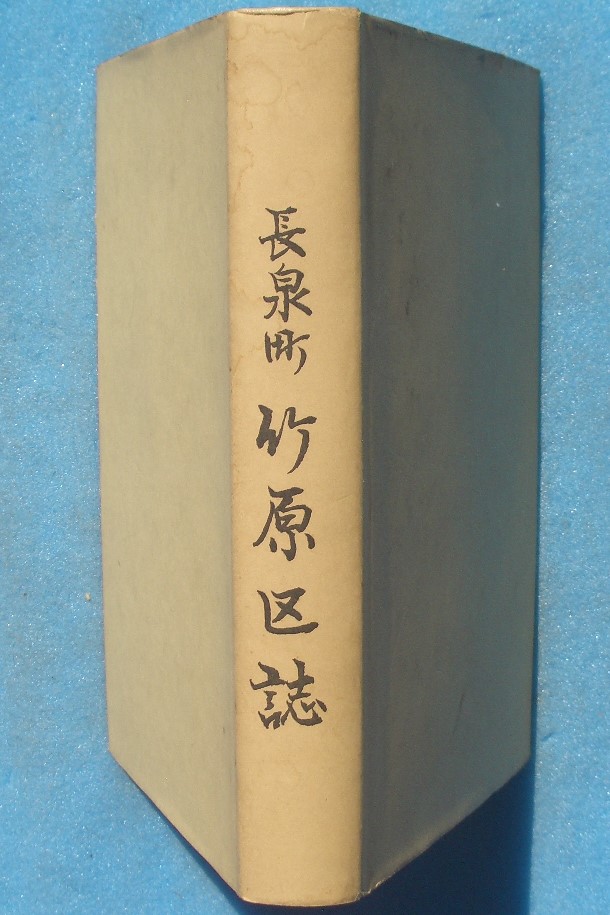 長泉町 竹原区誌